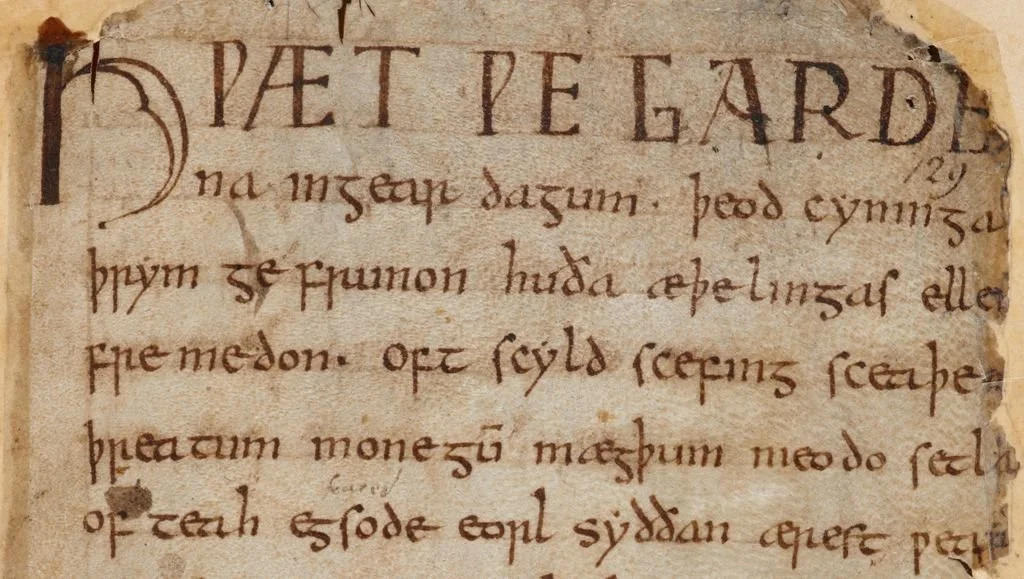 HǷÆT ǷE GARDE
129
na ingear dagum. þeod cyninga
þrym ge frunon huða æþelingas elle
fre medon. oft scyld scefing sceaþe
þreatum monegū mægþum meodo setla
of teah egsode eorl syððan ærest ƿear